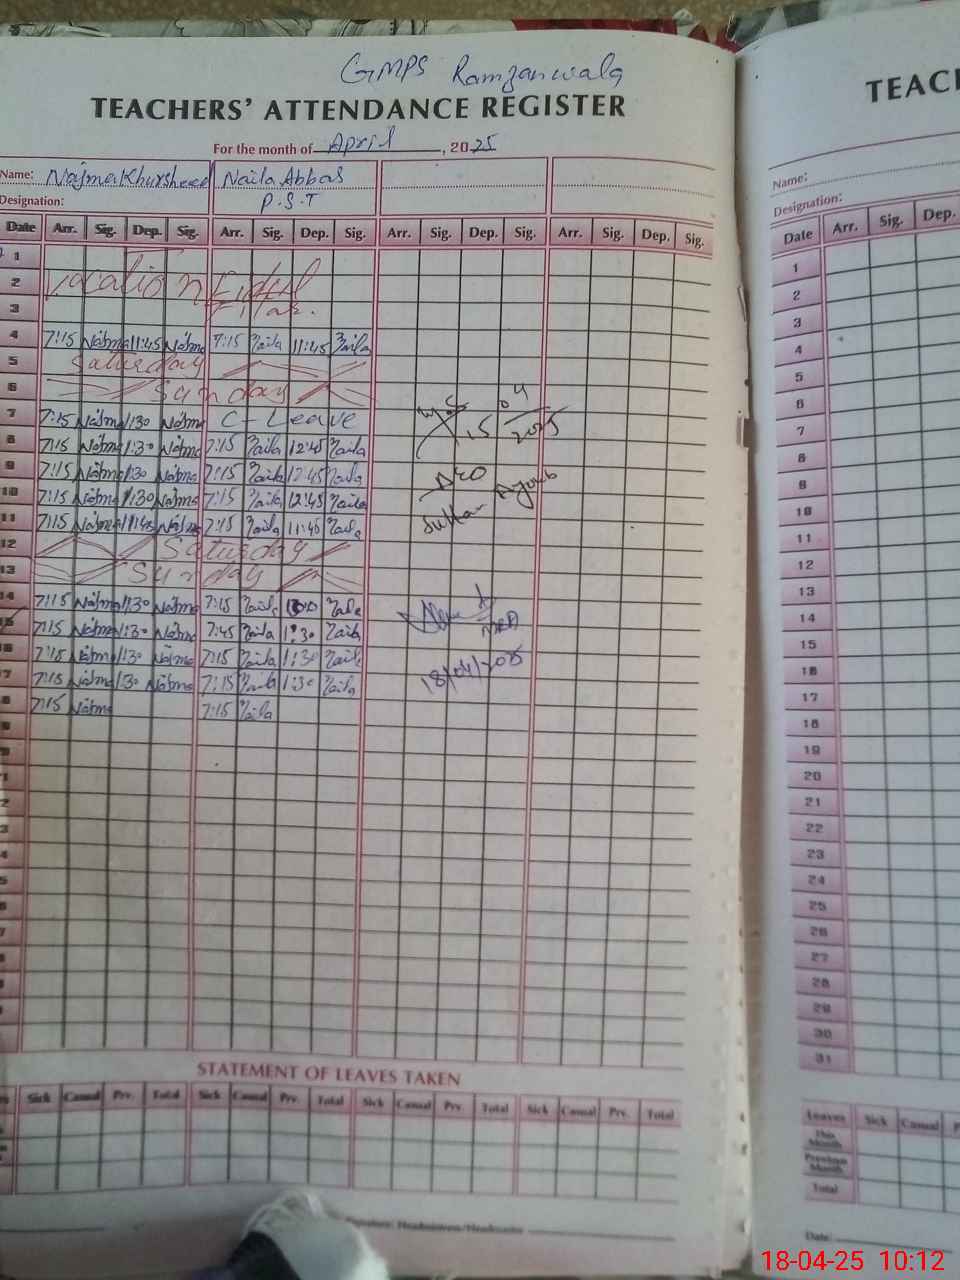 GMPS Ramzanwala
TEACHERS' ATTENDANCE REGISTER
For the month of April, 2025
Name: Najma Khursheed Naila Abbas
Designation: P.S.T
Date Arr. Sig. Dep. Sig. Arr. Sig. Dep. Sig. Arr. Sig. Dep. Sig. Arr. Sig. Dep. Sig.
1
2 Vocation Eidul
3 Fitar.
4 7:15 Najma 11:45 Najma 7:15 Naila 11:45 Naila
5 Saturday
6 Sunday
7 7:15 Najma 1:30 Najma C-Leave
8 7:15 Najma 1:30 Najma 7:15 Naila 12:45 Naila
9 7:15 Najma 1:30 Najma 7:15 Naila 12:45 Naila
10 7:15 Najma 1:30 Najma 7:15 Naila 12:45 Naila
11 7:15 Najma 11:45 Najma 7:15 Naila 11:46 Naila
12 Saturday
13 Sunday
14 7:15 Najma 1:30 Najma 7:15 Naila Naila
15 7:15 Najma 1:30 Najma 7:45 Naila 1:30 Naila
16 7:15 Najma 1:30 Najma 7:15 Naila 1:30 Naila
17 7:15 Najma 1:30 Najma 7:15 Naila 1:30 Naila
8 7:15 Najma 7:15 Naila
15 04 2025
Sultan Ayoub
18/04/2025
STATEMENT OF LEAVES TAKEN
Sick Casual Prv. Total Sick Casual Prv. Total Sick Casual Prv. Total Sick Casual Prv. Total
Signature: Headmistress/Headmaster
TEAC
Name:
Designation:
Date Arr. Sig. Dep.
1
2
3
4
5
6
7
8
9
10
11
12
13
14
15
16
17
18
19
20
21
22
23
24
25
26
27
28
29
30
31
Leaves Sick Casual P
This Month
Previous Month
Total
Date:
18-04-25 10:12